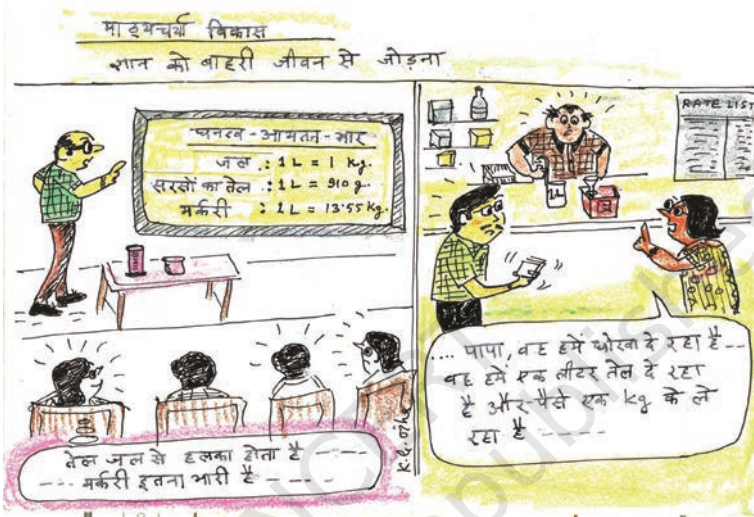 पाठ्यचर्या विकास
ज्ञान को बाहरी जीवन से जोड़ना
घनत्व-आयतन-भार
जल : 1L = 1 Kg.
सरसों का तेल : 1L = 910 g.
मर्करी : 1L = 13.55 Kg.
तेल जल से हलका होता है -----
--- मर्करी इतना भारी है -----
RATE LIST
1L
.... पापा, वह हमें धोखा दे रहा है---
वह हमें एक लीटर तेल दे रहा
है और पैसे एक kg के ले
रहा है -----